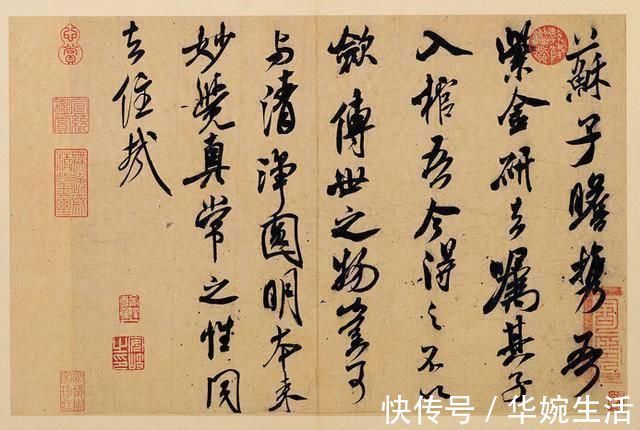 蘇子瞻携吾
紫金研去嘱其子
入棺吾今得之不以
斂傳世之物豈可
与清淨圓明本来
妙覺真常之性同
去住哉
快传号／华婉生活